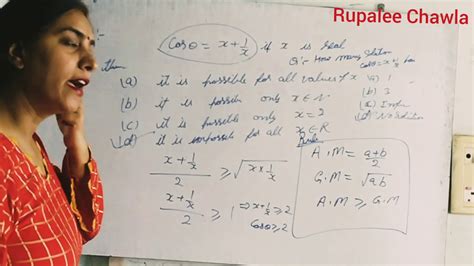 Rupalee Chawla
Cosθ = x + 1/x if x is real
Q: How many solution
cosθ = x + 1/x has
then
(a) it is possible for all values of x
1
(b) it is possible only x ∈ N
(b) 3
(c) it is possible only x = 2
(d) it is impossible for all x ∈ R
(d) No solution
(x + 1/x)/2 ≥ √(x × 1/x)
(x + 1/x)/2 ≥ 1 ⇒ x + 1/x ≥ 2
Cosθ ≥ 2
A.M = (a+b)/2
G.M = √ab
A.M ≥ G.M